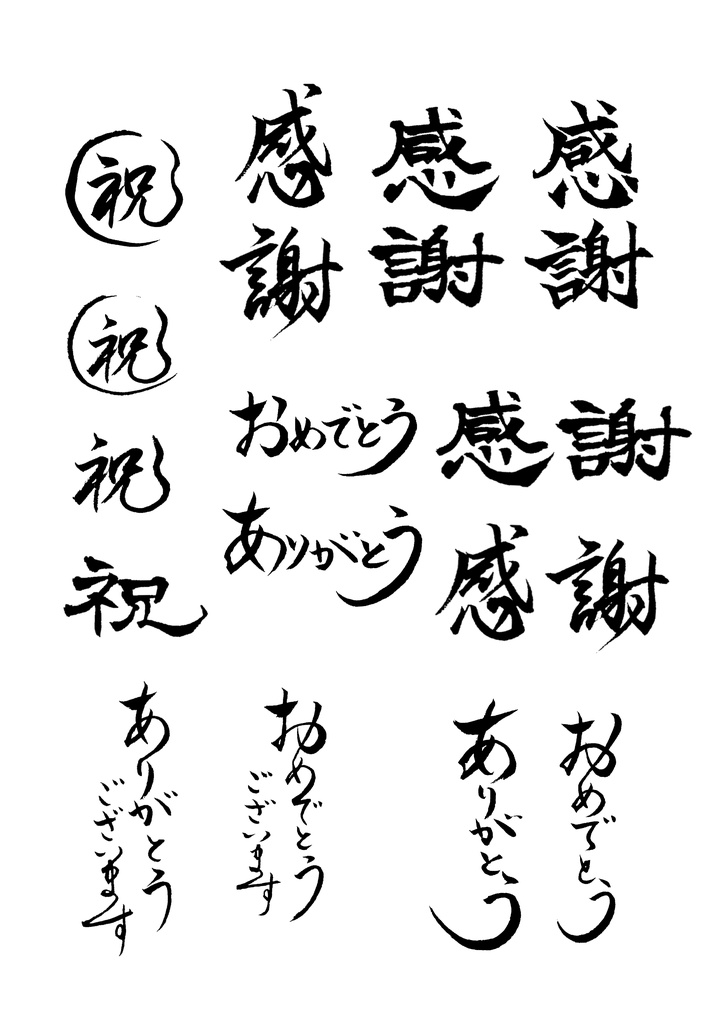 祝
感謝
感謝
感謝
祝
祝
祝
おめでとう
ありがとう
感謝
感謝
ありがとう
ございます
おめでとう
ございます
ありがとう
おめでとう